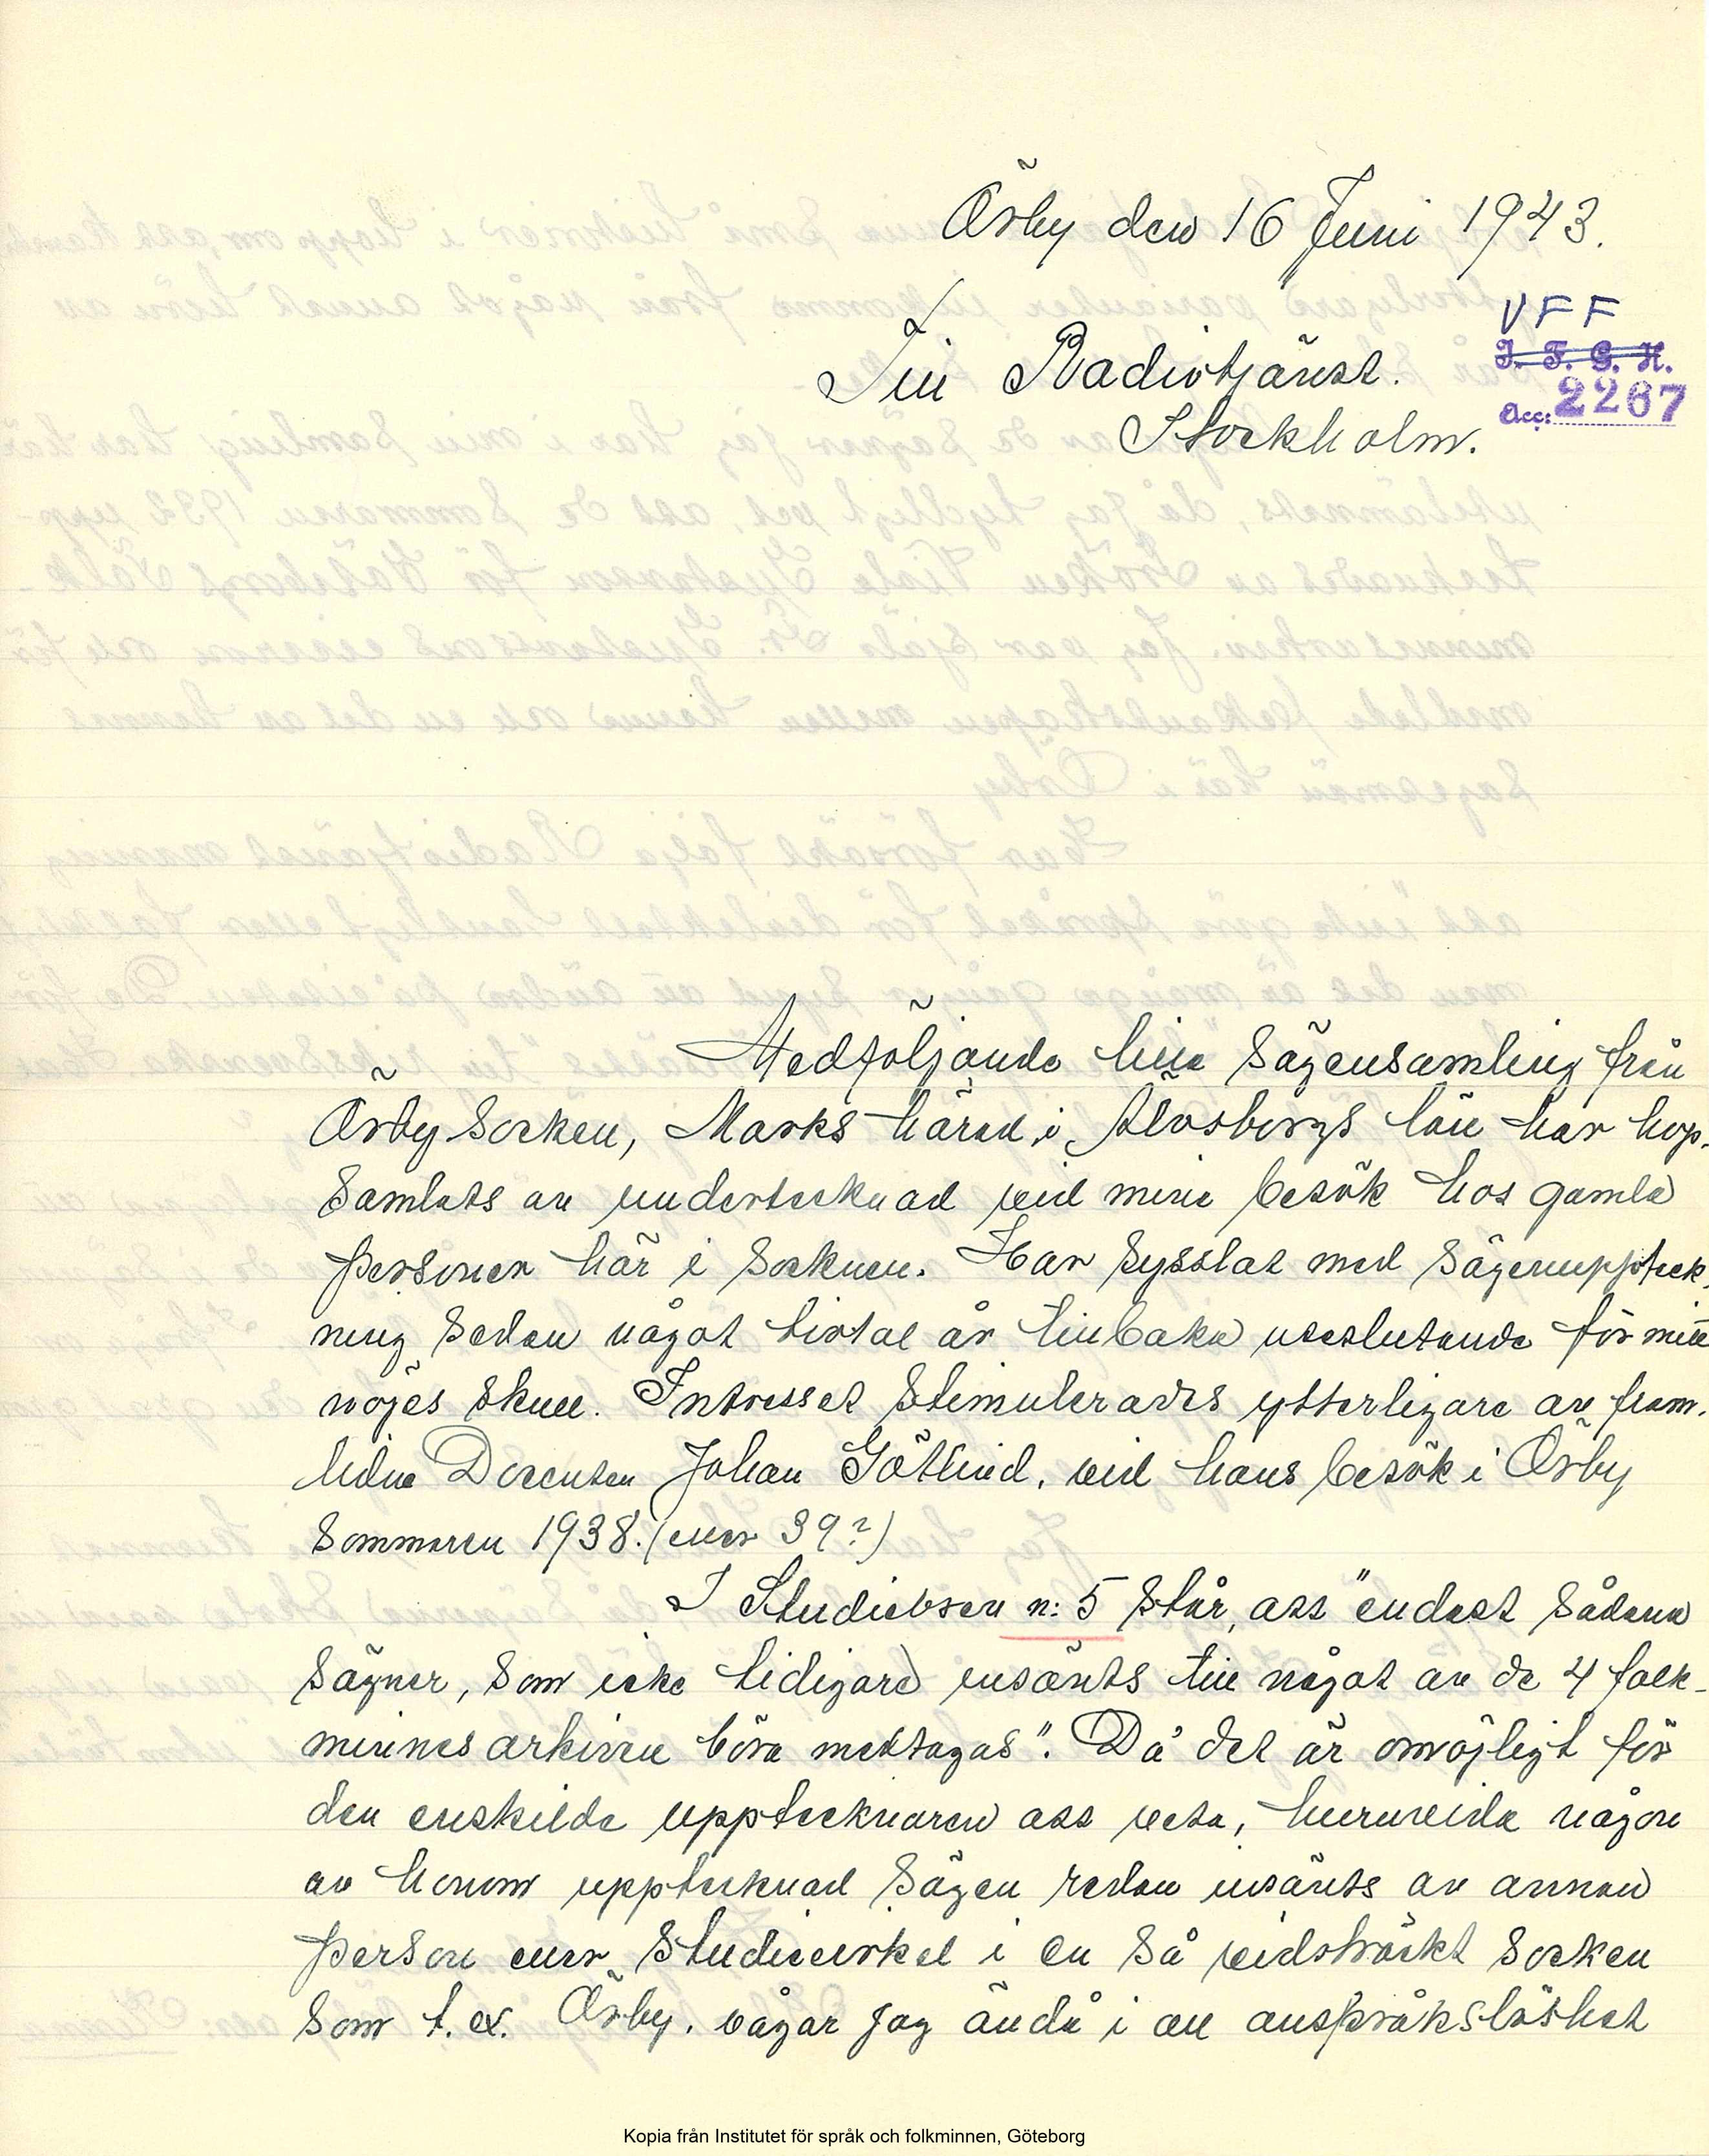 Örby den 16 Juni 1943.
VFF
I. F. G. H.
Acc: 2267
Till Radiotjänst.
Stockholm.
Medföljande lilla sägensamling från
Örby socken, Marks härad, i Älvsborgs län har hop-
samlats av undertecknad vid mina besök hos gamla
personer här i socknen. Har sysslat med sägenuppteck-
ning sedan något tiotal år tillbaka uteslutande för mitt
nöjes skull. Intresset stimulerades ytterligare av fram-
lidne Docenten Johan Götlind, vid hans besök i Örby
sommaren 1938. (eller 39?)
I Studiebrev n: 5 står, att "endast sådana
sägner, som icke tidigare insänts till något av de 4 folk-
minnesarkiven böra medtagas". Då det är omöjligt för
den enskilde upptecknaren att veta, huruvida någon
av honom upptecknad sägen redan insänts av annan
person eller studiecirkel i en så vidsträckt socken
som t. ex. Örby, vågar jag ändå i all anspråkslöshet
Kopia från Institutet för språk och folkminnen, Göteborg